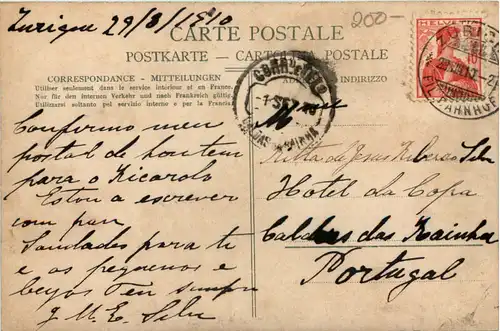 Zurique 29/8/1910
200-
CARTE POSTALE
POSTKARTE — CARTOLINA POSTALE
CORRESPONDANCE - MITTEILUNGEN
INDIRIZZO
Utiliser seulement dans le service intérieur et en France.
Nur für den internen Verkehr und nach Frankreich gültig.
Utilizarsi soltanto pel servizio interno e per la Francia.
HELVETIA
10
Confirmo meu
postal de hontem
para o Ricardo
Estou a escrever
com
Saudades para ti
e os pequenos e
beijos Teu sempre
J. M. E. Silva
Ritta de Jesus Ribeiro Silva
Hotel da Copa
Caldas da Rainha
Portugal